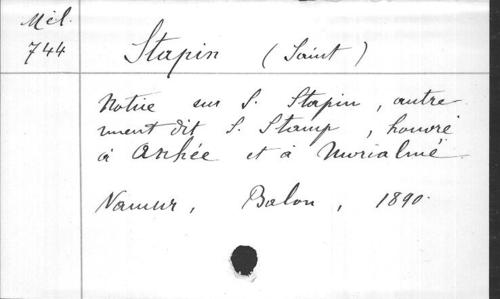 Mél.
744
Stapin (Saint)
Notice sur S. Stapin, autre
ment dit S. Stamp, honoré
à Ashée et à Morialmé
Namur, Balon, 1890.